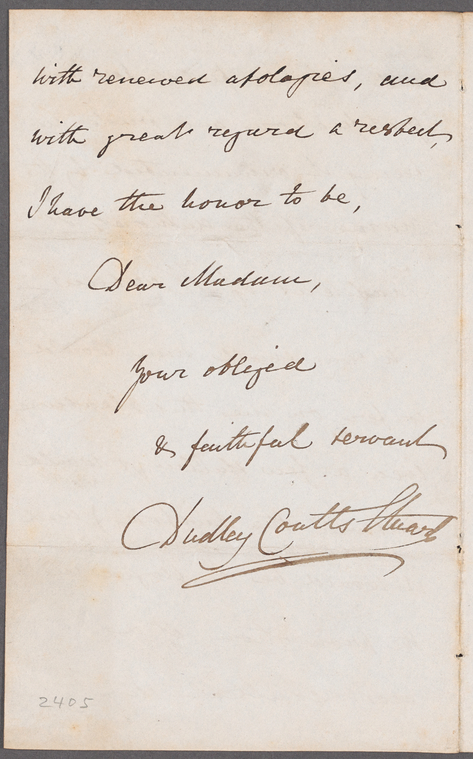 with renewed apologies, and
with great regard & respect,
I have the honor to be,
Dear Madam,
Your obliged
& faithful servant
Dudley Coutts Stuart
2405